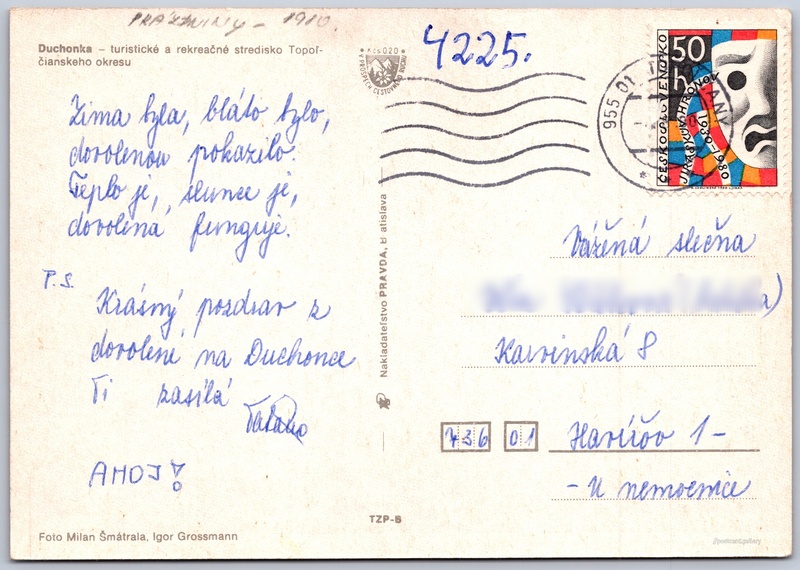 PRÁZDNINY – 1980.
Duchonka – turistické a rekreačné stredisko Topoľ-
čianskeho okresu
Kčs 020
V PROSPECH CESTOVNÉHO RUCHU
4225.
955 01
ČESKOSLOVENSKO
50
h
JIRÁSKŮV HRONOV
1930–1980
Zima byla, bláto bylo,
dovolenou pokazilo.
Teplo je, slunce je,
dovolená funguje.
P.S.
Krásný pozdrav z
dovolené na Duchonce
Ti zasílá
AHOJ!
Nakladateľstvo PRAVDA, Bratislava
Vážená slečna
Karvinská 8
736 01 Havířov 1 –
– U nemocnice
TZP-B
Foto Milan Šmátrala, Igor Grossmann